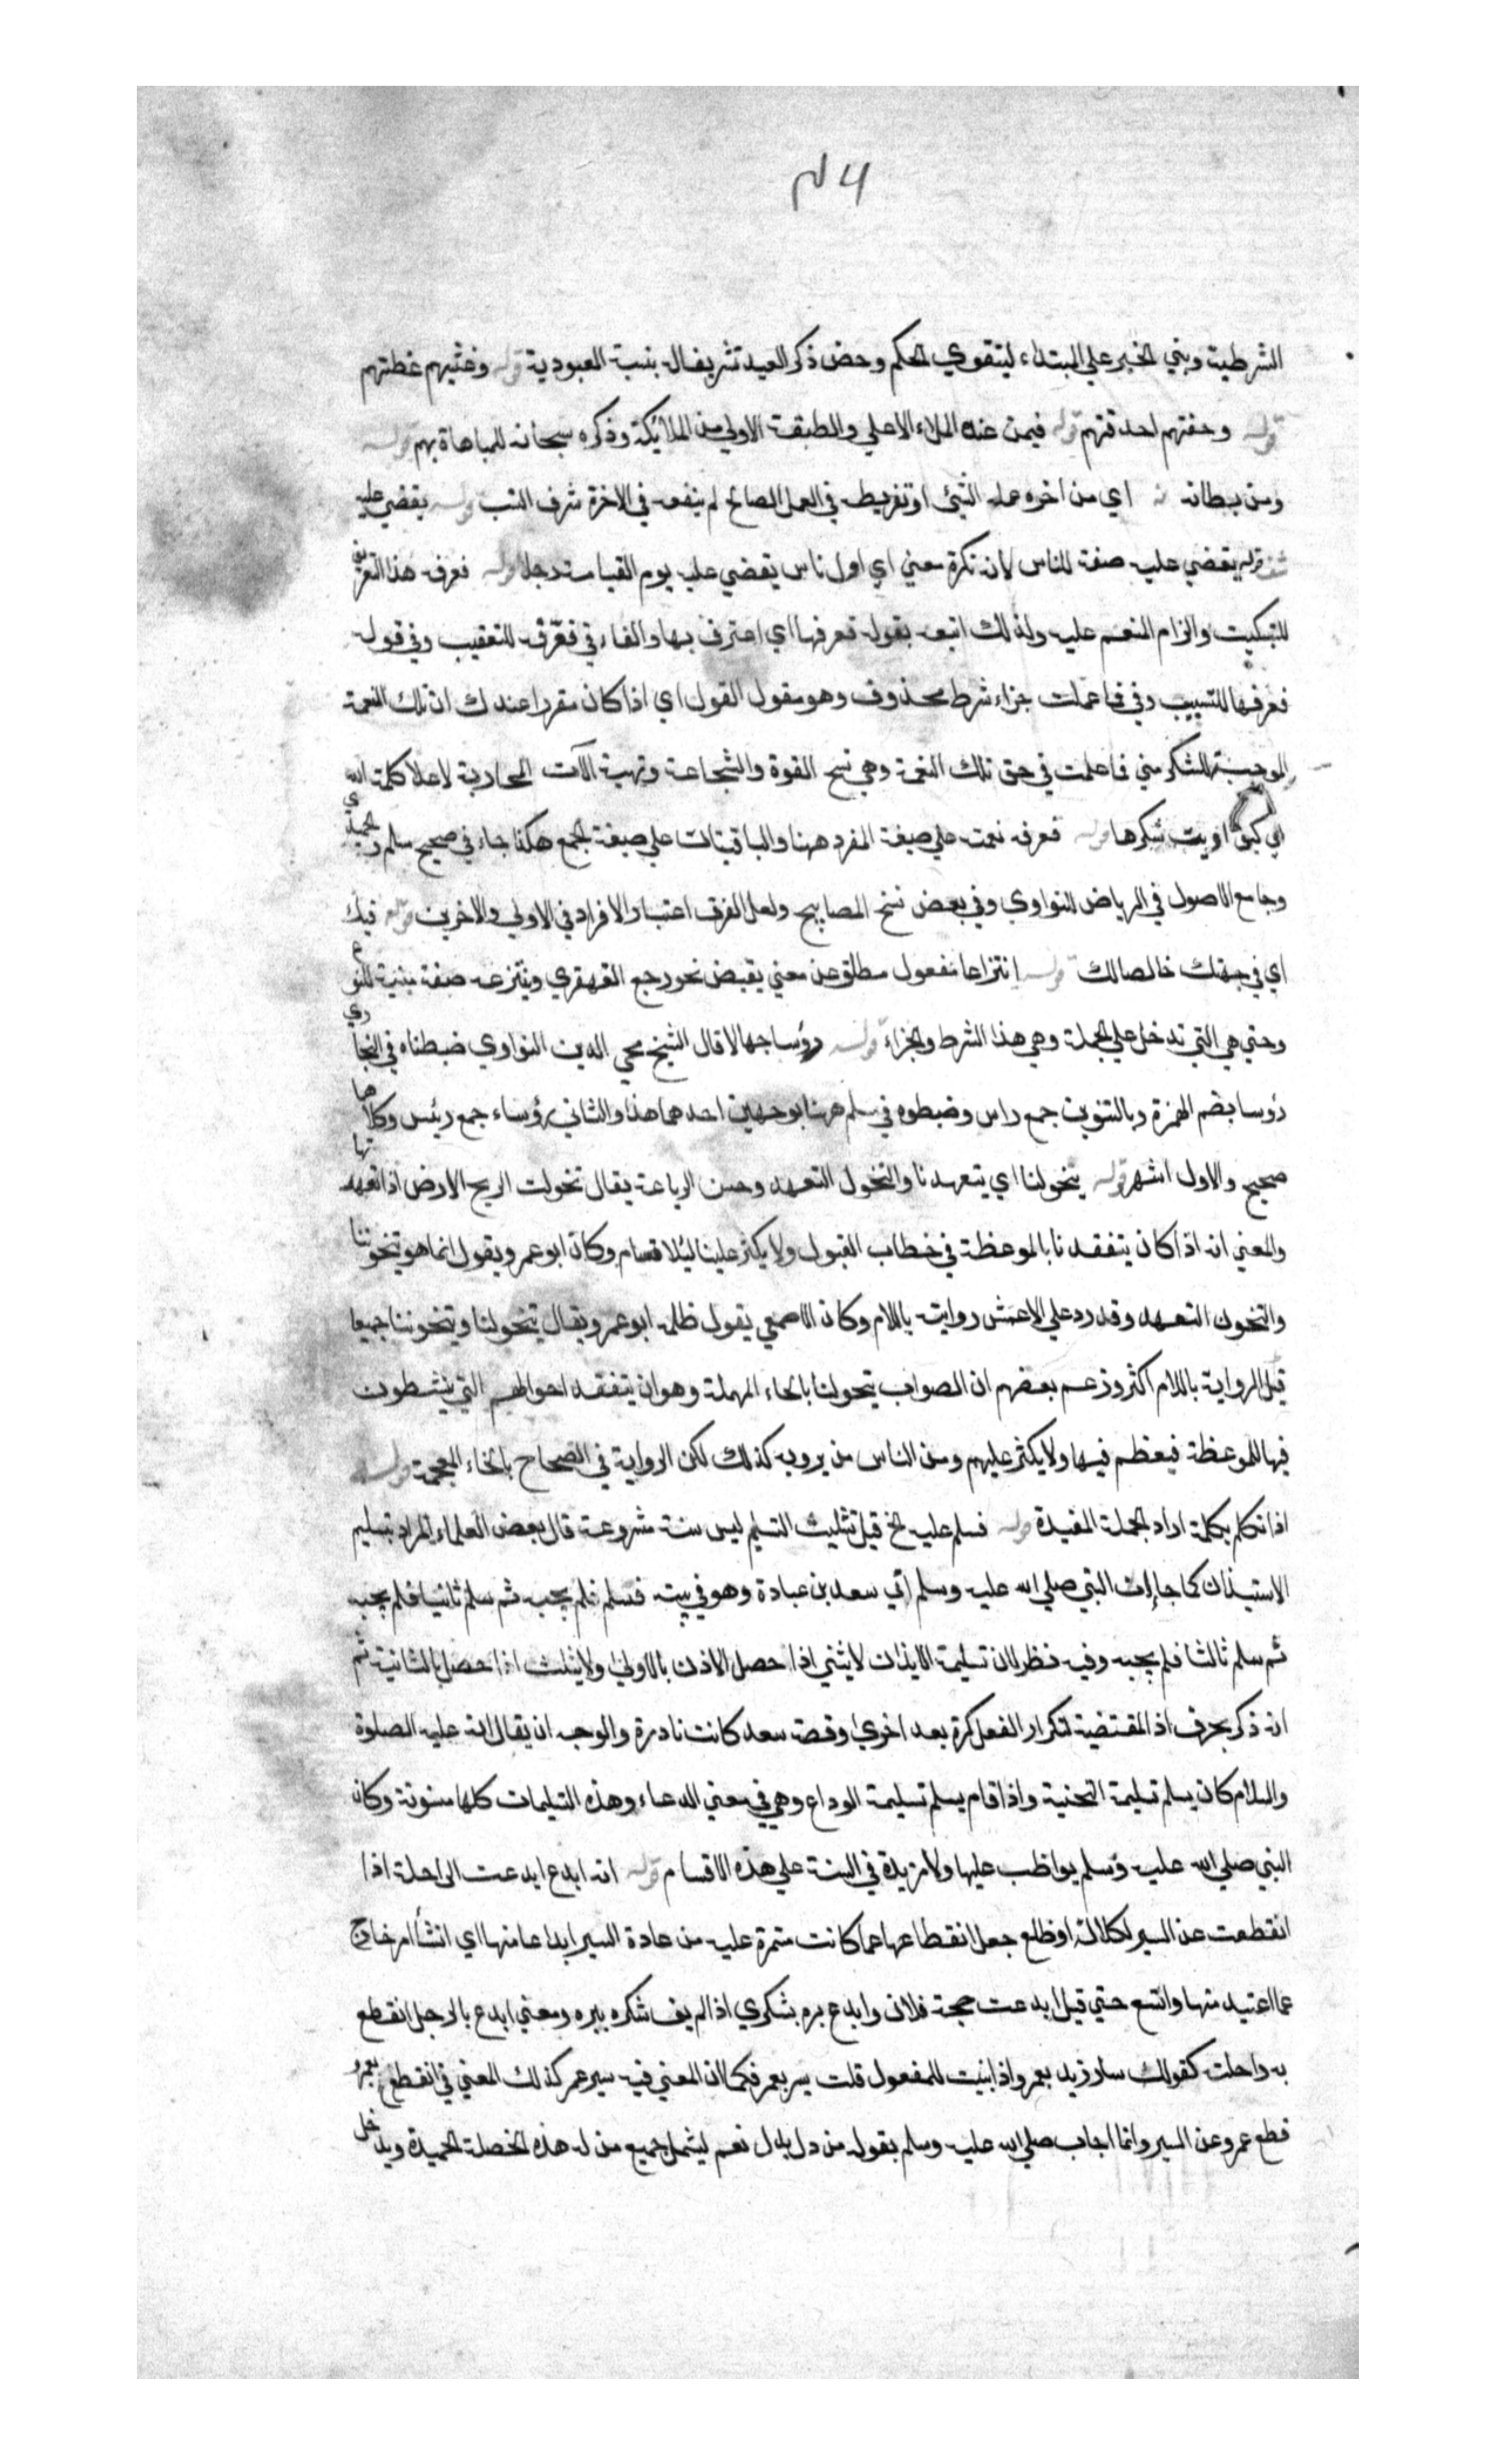 ٤٦
الشرطية وبني الخبر علي المبتداء ليتقوي الحكم وخص ذكر العبد تشريفاله بنسبة العبودية قوله وغشيهم غطتهم
قوله وحفتهم احدقتهم قوله فيمن عنده الملاء الاعلي والطبقة الاولي من الملائكة وذكره سبحانه للمباهاة بهم قوله
ومن بطأ به اي من اخره عمله السيئ او تفريطه في العمل الصالح لم ينفعه في الاخرة شرف النسب قوله يقضي عليه
قوله يقضي عليه صفة للناس لانه نكرة معني اي اول ناس يقضي عليه يوم القيامة رجل قوله فعرفه هذا التعريف
للتبكيت والزام المنعم عليه ولذلك اتبعه بقوله فعرفها اي اعترف بها والفاء في فعرّفه للتعقيب وفي قوله
فعرفها للتسبيب وفي فما عملت جزاء شرط محذوف وهو مقول القول اي اذا كان مقررا عندك ان تلك النعمة
الموجبة للشكر مني فما عملت في حق تلك النعمة وهي نسج القوة والشجاعة وتهيئة الآت المحاربة لاعلا كلمة الله
اي كيف اديت شكرها قوله فعرفه نعمته علي صيغة المفرد ههنا والباقيتان علي صيغة الجمع هكذا جاء في صحيح مسلم والحميدي
وجامع الاصول في الرياض للنواوي وفي بعض نسخ المصابيح ولعل الفرق اعتبار الافراد في الاولي والاخرين قوله فيك
اي في جهتك خالصا لك قوله انتزاعا مفعول مطلق عن معني يقبض نحو رجع القهقري وينتزعه صفة مبنية للنوع
وحتي هي التي تدخل علي الجملة وهي هذا الشرط والجزاء قوله رؤسا جهالا قال الشيخ محي الدين النواوي ضبطناه في البخاري
رؤسا بضم الهمزة وبالتنوين جمع راس وضبطوه في مسلم ههنا بوجهين احدهما هذا والثاني رؤساء جمع رئيس وكلاهما
صحيح والاول اشهر قوله يتخولنا اي يتعهدنا والتخول التعهد وحسن الرعاية يقال تخولت الريح الارض اذا تعهدتها
والمعني انه اذا كان يتفقدنا بالموعظة في خطاب القبول ولا يكثر علينا لئلا نسام وكان ابو عمرو يقول انما هو يتخوننا
والتخون التعهد وقد رد علي الاعمش روايته باللام وكان الاصمعي يقول ظلمه ابو عمرو يقال يتخولنا ويتخوننا جميعا
قيل الرواية باللام اكثر وزعم بعضهم ان الصواب يتحولنا بالحاء المهملة وهو ان يتفقد احوالهم التي ينشطون
فيها للموعظة فيعظهم فيها ولا يكثر عليهم ومن الناس من يرويه كذلك لكن الرواية في الصحاح بالخاء المعجمة قوله
اذا تكلم بكلمة اراد الجملة المفيدة قوله فسلم عليه الخ قيل تثليث التسليم ليس سنة مشروعة قال بعض العلماء المراد تسليم
الاستيذان كما جاء ان النبي صلي الله عليه وسلم اتي سعد بن عبادة وهو في بيته فسلم فلم يجبه ثم سلم ثانيا فلم يجبه
ثم سلم ثالثا فلم يجبه وفيه نظر لان تسليمة الايذان لا يثني اذا حصل الاذن بالاولي ولا يثلث اذا حصل بالثانية ثم
انه ذكر بحرف اذ المقتضية لتكرار الفعل كرة بعد اخري وقصة سعد كانت نادرة والوجه ان يقال انه عليه الصلوة
والسلام كان يسلم تسليمة التحية واذا قام يسلم تسليمة الوداع وهي في معني الدعاء وهذه التسليمات كلها مسنونة وكان
النبي صلي الله عليه وسلم يواظب عليها ولا مزيدة في السنة علي هذه الاقسام قوله انه ابدع ابدعت الراحلة اذا
انقطعت عن السير لكلالة او ظلع جعل انقطاعها عما كانت مستمرة عليه من عادة السير ابداعا منها اي انشأ امر خارج
عما اعتيد منها واتسع حتي قيل ابدعت حجة فلان وابدع بره بشكري اذا لم يف شكره ببره ومعني ابدع بالرجل انقطع
به راحلته كقولك سار زيد بعمرو اذا بنيت للمفعول قلت سير بعمرو فكما ان المعني فيه سير عمر كذلك المعني في انقطع بعمرو
قطع عمرو عن السير وانما اجاب صلي الله عليه وسلم بقوله من دل بدل نعم ليشمل جميع من له هذه الخصلة الحميدة ويدخل